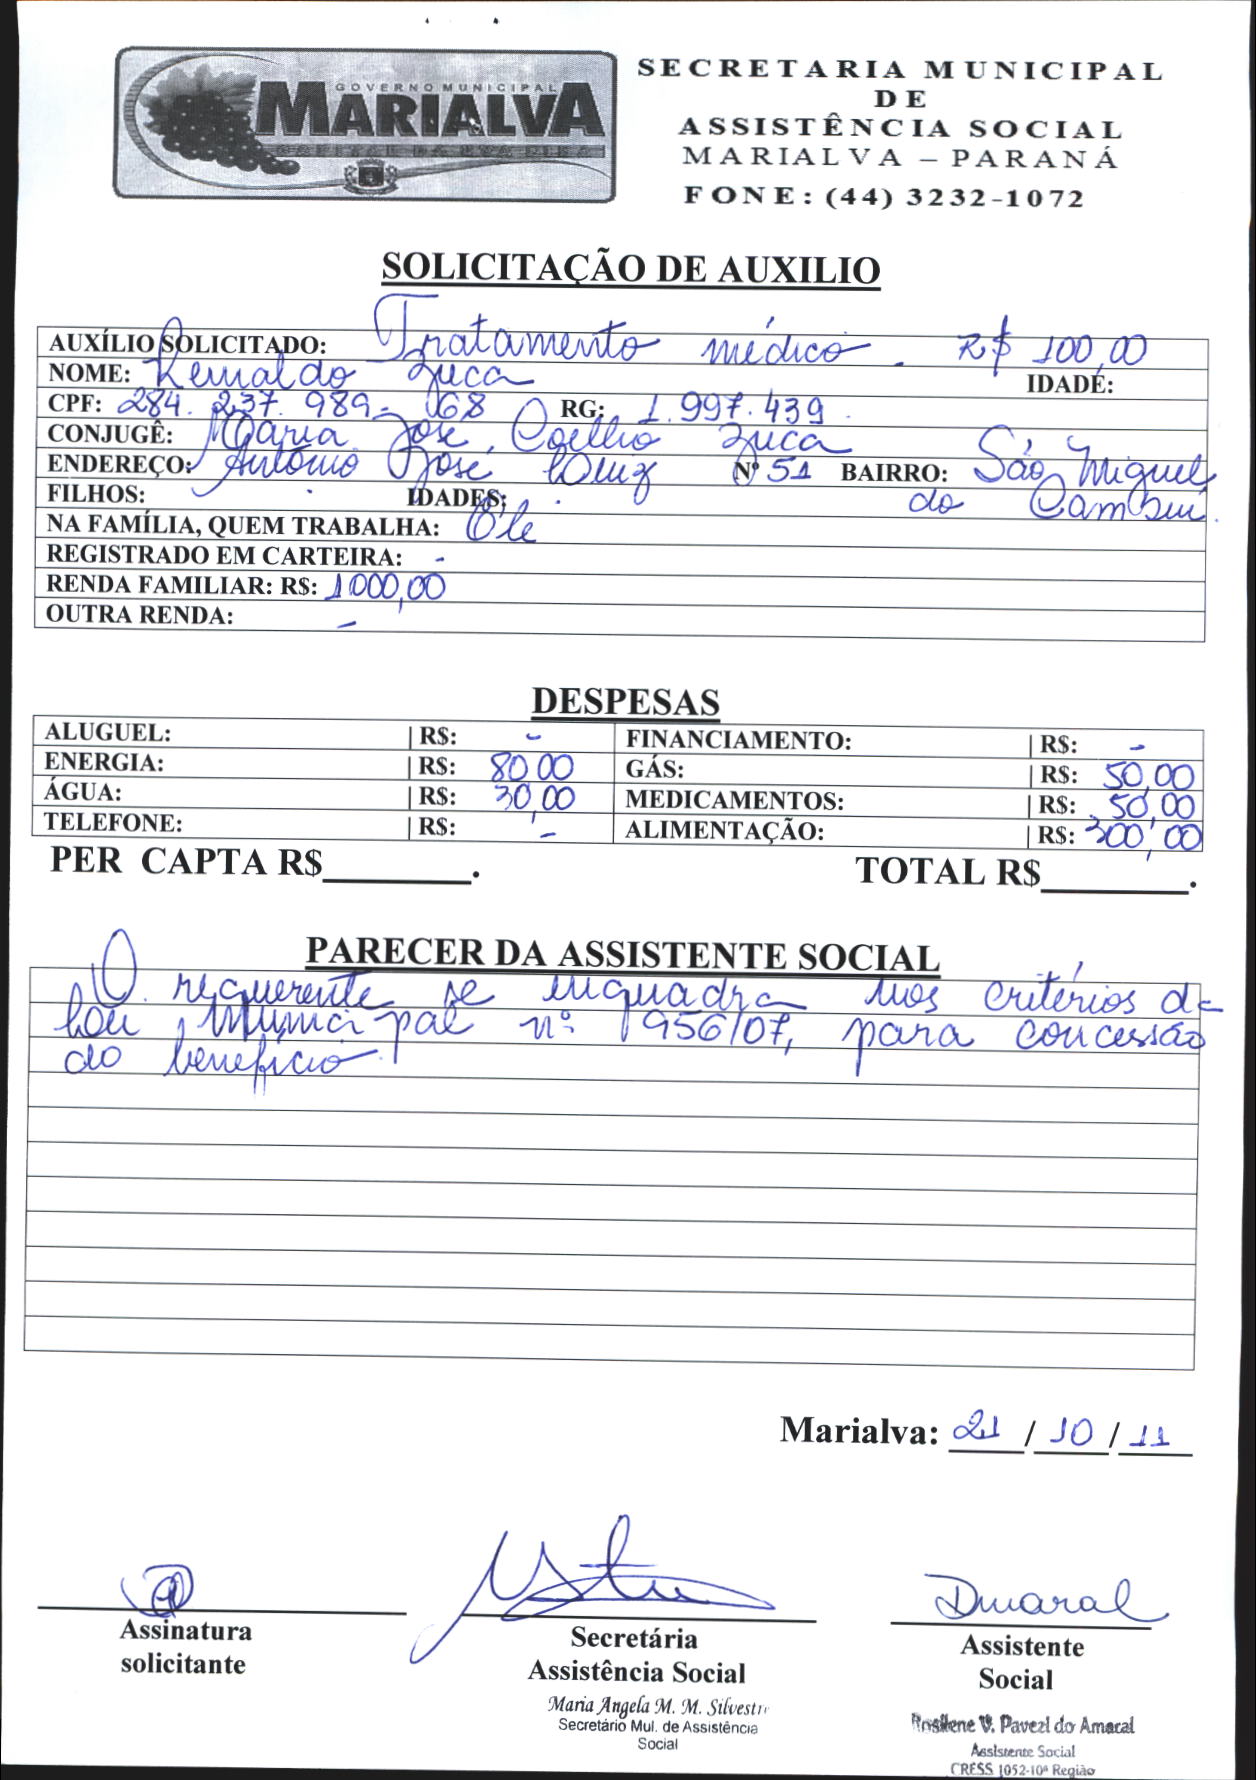 GOVERNO MUNICIPAL
MARIALVA
CAPITAL DA UVA FINA
SECRETARIA MUNICIPAL
DE
ASSISTÊNCIA SOCIAL
MARIALVA – PARANÁ
FONE: (44) 3232-1072
SOLICITAÇÃO DE AUXILIO
AUXÍLIO SOLICITADO: Tratamento médico. R$ 100,00
NOME: Reinaldo Zuca IDADE:
CPF: 284.237.989-68 RG: 1.997.439.
CONJUGÊ: Maria José Coelho Zuca
ENDEREÇO: Antônio José Nº 51 BAIRRO: São Miguel
FILHOS: IDADES: do Cambuí.
NA FAMÍLIA, QUEM TRABALHA: Ele
REGISTRADO EM CARTEIRA: -
RENDA FAMILIAR: R$: 1000,00
OUTRA RENDA: -
DESPESAS
ALUGUEL: | R$: - FINANCIAMENTO: | R$: -
ENERGIA: | R$: 80,00 GÁS: | R$: 50,00
ÁGUA: | R$: 30,00 MEDICAMENTOS: | R$: 50,00
TELEFONE: | R$: - ALIMENTAÇÃO: | R$: 300,00
PER CAPTA R$________. TOTAL R$________.
PARECER DA ASSISTENTE SOCIAL
O requerente se enquadra nos critérios da
Lei Municipal nº 1956/07, para concessão
do benefício.
Marialva: 21 / 10 / 11
Amaral
Assinatura
solicitante
Secretária
Assistência Social
Assistente
Social
Maria Angela M. M. Silvestre
Secretário Mul. de Assistência
Social
Rosilene V. Pavezi do Amaral
Assistente Social
CRESS 1052-10ª Região